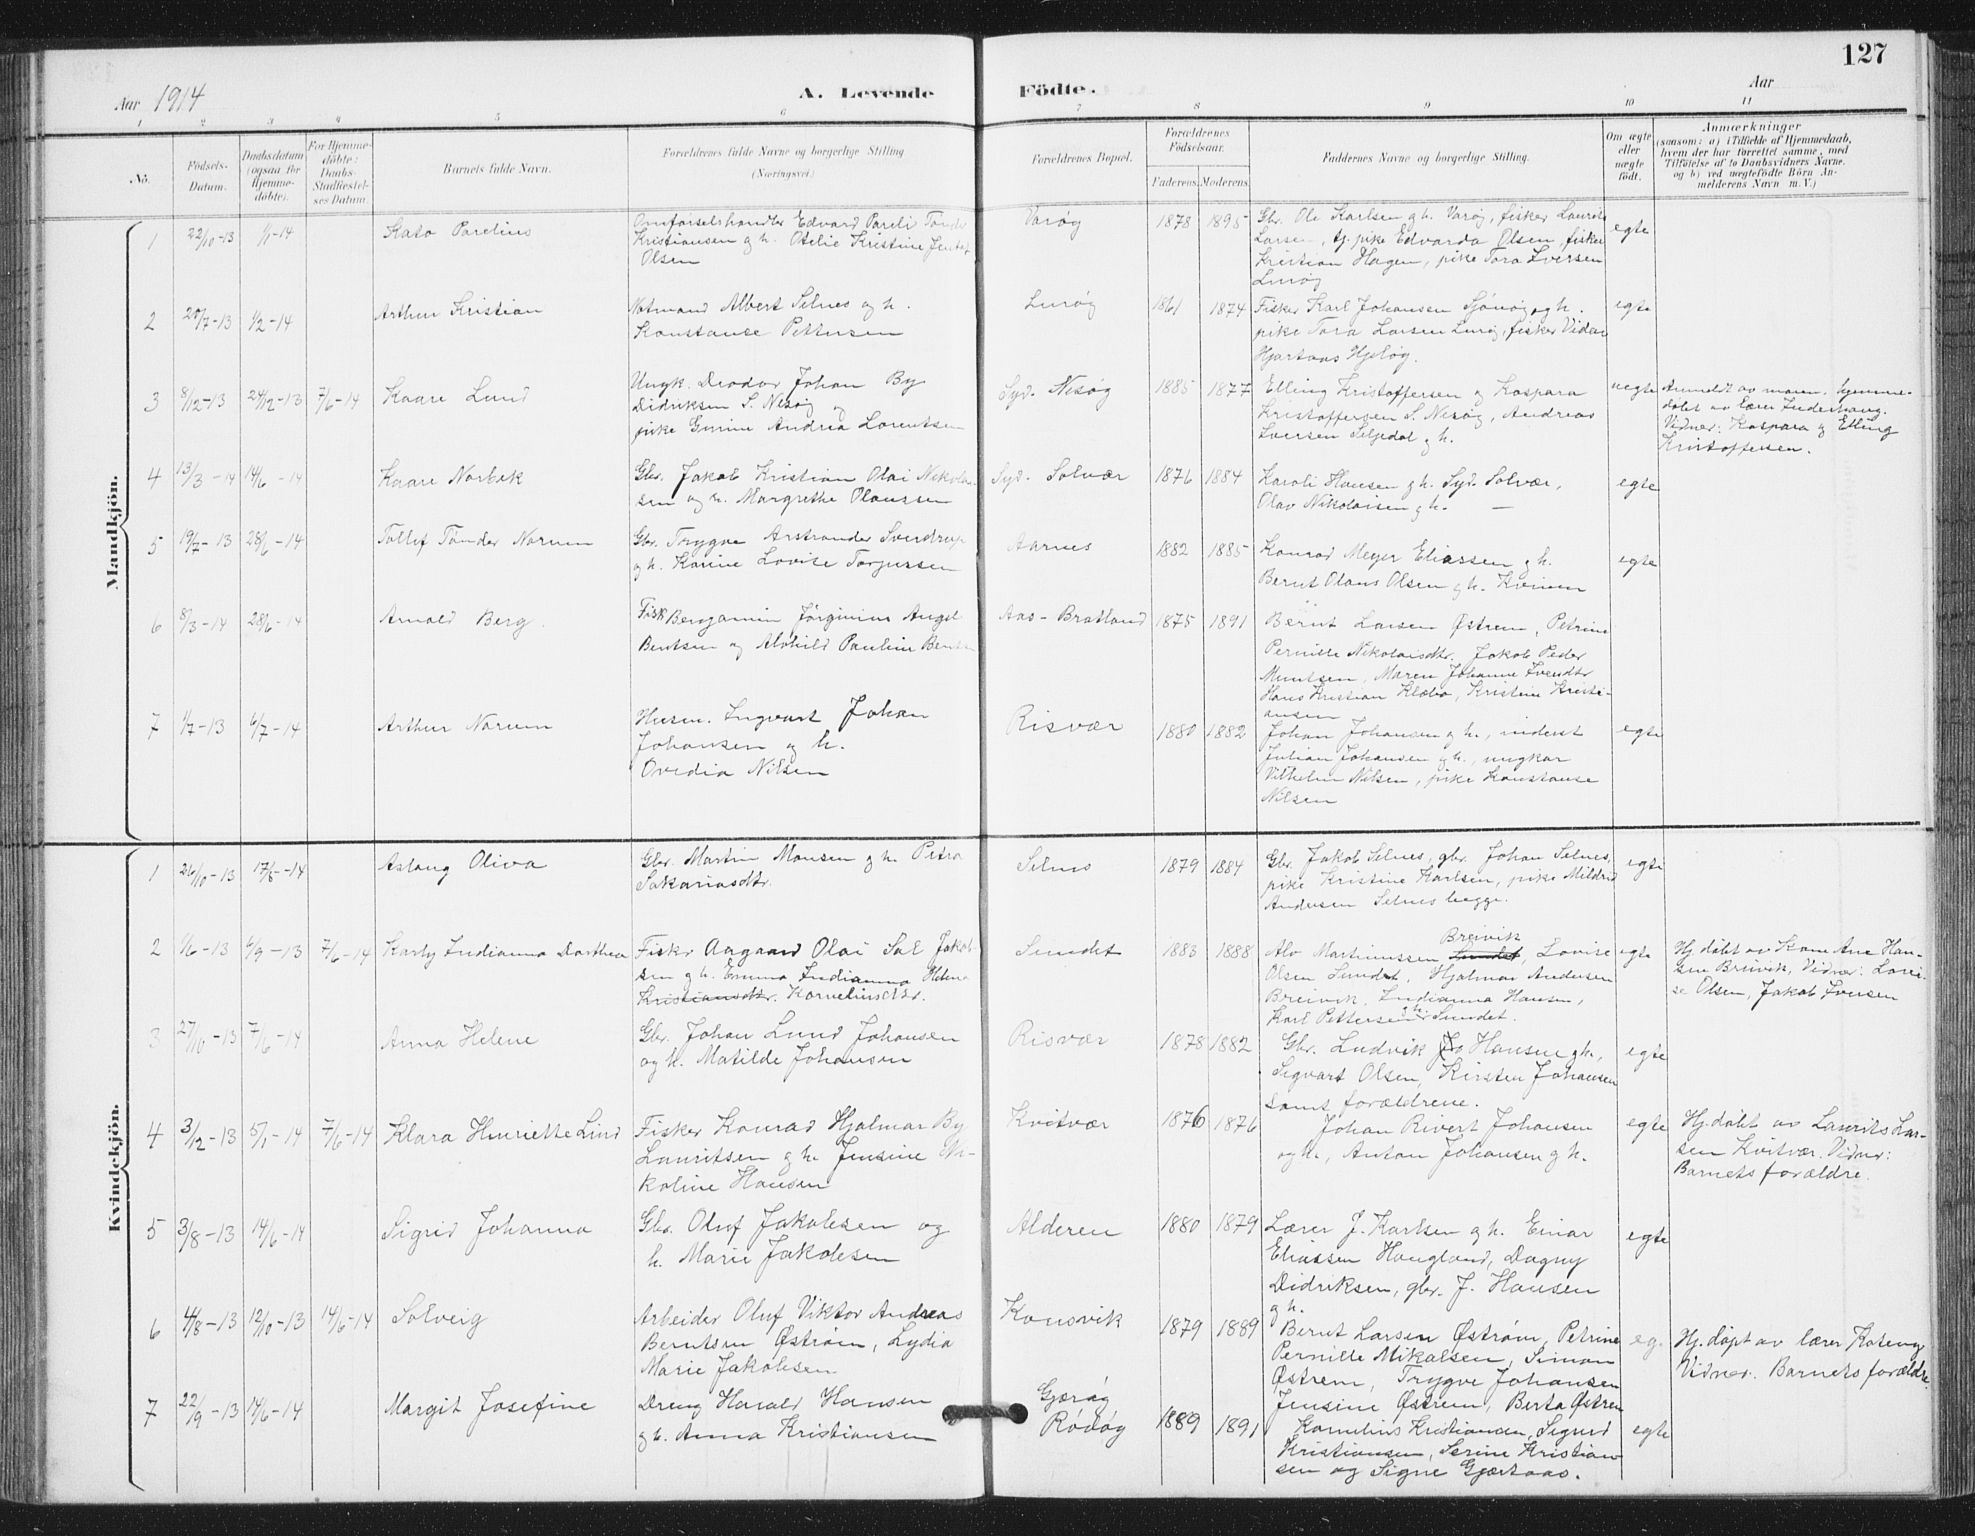 127
Aar 1914
A. Levende Födte.
Aar
1 2 3 4 5 6 7 8 9 10 11
No.
Födsels-Datum.
Daabsdatum (ogsaa for Hjemme-döbte).
For Hjemme-döbte: Daabs-Stadfæstel-ses Datum.
Barnets fulde Navn.
Forældrenes fulde Navne og borgerlige Stilling
(Næringsvei.)
Forældrenes Bopæl.
Forældrenes Födselsaar.
Faderens. Moderens.
Faddernes Navne og borgerlige Stilling.
Om ægte eller uægte födt.
Anmærkninger
(saasom: a) i Tilfælde af Hjemmedaab,
hvem der har forrettet samme, med
Tilföielse af to Daabsvidners Navne,
og b) ved uægtefödte Börn An-
melderens Navn m. V.)
Mandkjön.
1 22/10-13 1/1-14 Kato Parelius
Omførselshandler Edvard Pareli Tønder
Kristiansen og h. Otelie Kristine
Olsen
Varøy 1878 1895
Gbr. Ole Karlsen g h. Varøy, fisker Laurits
Larsen, tj. pike Edvarda Olsen, fisker
Kristian Hagen, pike Tora Iversen
Lurøy
egte
2 20/7-13 1/2-14 Arthur Kristian
Notmand Albert Selnes og h.
Konstanse Pettersen
Lurøy 1861 1874
Fisker Karl Johansen Sjonøy og h.
pike Tora Larsen Lurøy, fisker Vidar
Hjartaas Hjeløy.
egte
3 8/12-13 24/12-13 7/6-14 Kaare Lund
Ungk. Deodor Johan By
Didriksen S. Nesøy og
pike Gurine Andrea Lorentsen
Syd. Nesøy 1885 1877
Elling Kristoffersen og Kaspara
Kristoffersen S. Nesøy, Andreas
Iversen Seljedal g h.
uegte
Anmeldt av moren. hjemme-
døbt av lærer
Vidner: Kaspara g Elling
Kristoffersen.
4 13/3-14 14/6-14 Kaare Norbek
Gbr. Jakob Kristian Olai Nikolai-
sen og h. Margrethe Olaussen
Syd. Solvær 1876 1884
Karoli Hansen g h. Syd. Solvær,
Olav Nikolaisen g h. —
egte
5 19/7-13 28/6-14 Tollef Tønder Norum
Gbr. Trygve Arstrander Sverdrup
og h. Karine Lovise Torgersen
Aarnes 1882 1885
Konrad Meyer Eliassen g h.
Bernt Olaus Olsen g h. Kvinum
egte
6 8/3-14 28/6-14 Arnold Berg.
Fisk. Benjamin Jørginius Angel
Bentsen og Alvhild Pauline Bentsen
Aas-Bratland 1875 1891
Bernt Larsen Østrem, Petrine
Pernille Nikolaisdtr. Jakob Peder
Muntsen, Maren Johanne Svendtr
Hans Kristian Klæbo, Kristine Kristi-
ansen
7 1/7-13 6/7-14 Arthur Norum
Husm. Ingvart Johan
Johansen og h.
Ovedia Nilsen
Risvær 1880 1882
Johan Johansen g h., inderst
Julian Johansen g h., ungkar
Vilhelm Nilsen, pike Konstanse
Nilsen
egte
Kvindekjön.
1 26/10-13 17/5-14 Aslaug Oliva
Gbr. Martin Monsen g h. Petra
Sakariasdtr.
Selnes 1879 1884
Gbr. Jakob Selnes, gbr. Johan Selnes,
pike Kristine Karlsen, pike Mildrid
Andersen Selnes begge.
egte
2 1/6-13 6/9-13 7/6-14 Karly Indianna Dorthea
Fisker Aagaard Olai Sal Jakob-
sen g h. Emma Indianna Helena
Kristiansdtr. Korneliusdtr.
Sundet 1883 1888
Breivik
Alv Martinussen Sundet, Lovise
Olsen Sundet, Hjalmar Andersen
Breivik, Indianna Hansen,
Karl Pettersen g h. Sundet.
egte
Hj. døbt av Kone Ane Han-
sen Breivik, Vidner: Lovi-
se Olsen, Jakob Iversen
3 27/10-13 7/6-14 Anna Helene
Gbr. Johan Lund Johansen
og h. Matilde Johansen
Risvær 1878 1882
Gbr. Ludvik Jo Hansen g h.,
Sigvart Olsen, Kirsten Johansen
samt forældrene.
egte
4 3/12-13 5/1-14 7/6-14 Klara Henriette Lind
Fisker Konrad Hjalmar By
Lauritsen g h. Jensine Ni-
koline Hansen
Kvitvær 1876 1876
Johan Rivert Johansen
og h., Anton Johansen g h.
egte
Hj. døbt av Laurits Lar-
sen Kvitvær. Vidner:
Barnets forældre.
5 3/8-13 14/6-14 Sigrid Johanna
Gbr. Oluf Jakobsen og
h. Marie Jakobsen
Alderen 1880 1879
Lærer J. Karlsen g h. Einar
Eliassen Haugland, Dagny
Didriksen, gbr. J. Hansen
g h.
egte
6 4/8-13 12/10-13 14/6-14 Solveig
Arbeider Oluf Viktor Andreas
Berntsen Østrøm, Lydia
Marie Jakobsen
Konsvik 1879 1889
Bernt Larsen Østrøm, Petrine
Pernille Mikalsen, Simon
Østrem, Trygve Johansen
Jensine Østrem, Berta Østrem
eg.
Hj. døpt av lærer Koteng
Vidner. Barnets forældre.
7 22/9-13 14/6-14 Margit Josefine
Dreng Harald Hansen
g h. Anna Kristiansen
Gjærøy
Rødøy 1889 1891
Kornelius Kristiansen, Sigurd
Kristiansen, Serine Kristian-
sen og Signe Gjærtaas.
egte